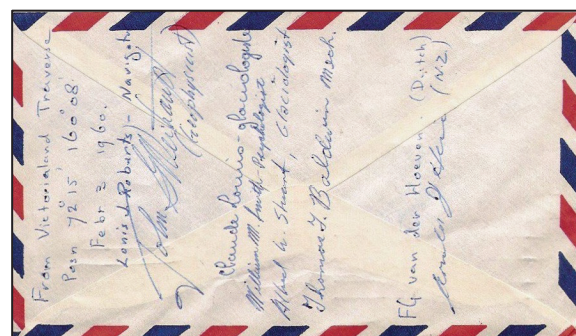 From Victorialand Traverse
Posn 72°15' 160°08'
Febr 2 1960.
Louis J Roberts - Navigator
John G Weihaupt
(Geophysicist)
Claude Lorius glaciologiste
William M. Smith - Psychologist
Alfred W. Stuart, Glaciologist
Thomas T. Baldwin Mech.
FG van der Hoeven (Dutch)
(N.Z)